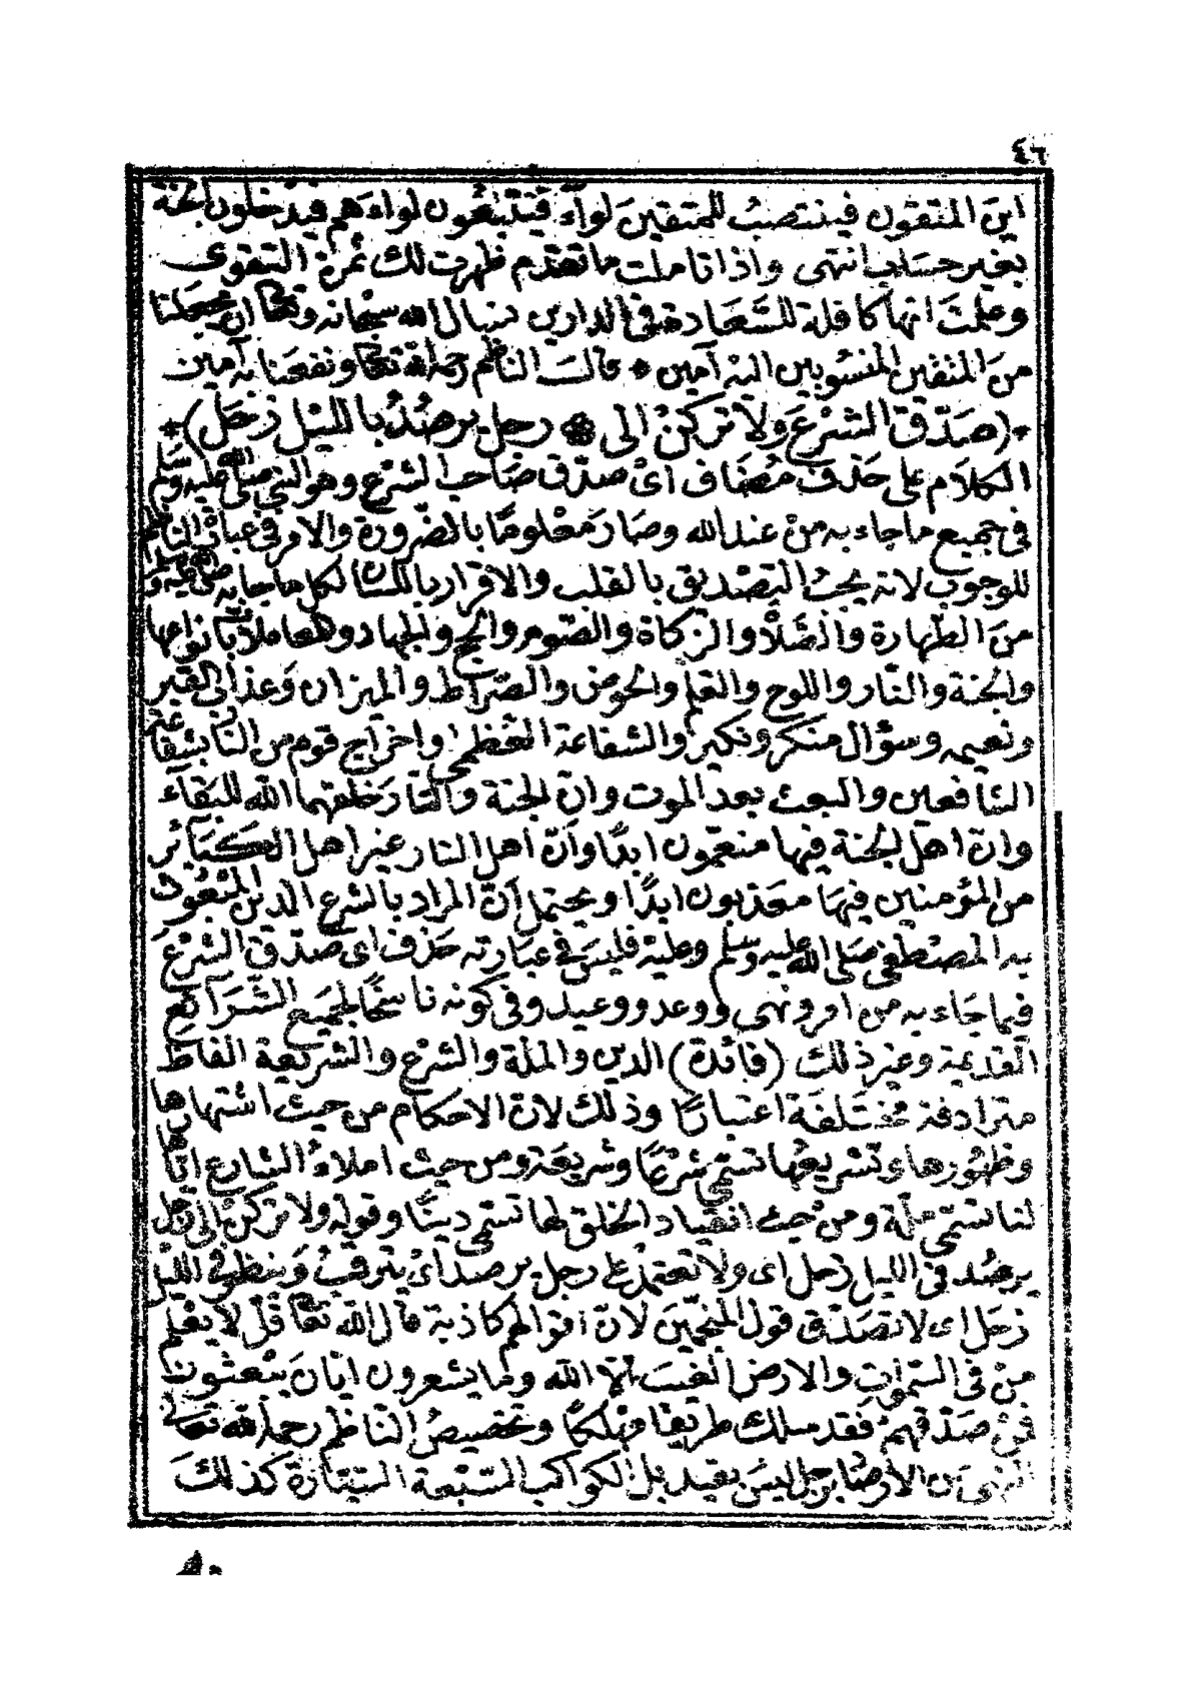 ٤٦
اين المتقون فينتصب للمتقين لواء فيتبعون لواءهم فيدخلون الجنة
بغير حساب انتهى واذا تاملت ما تقدم ظهرت لك ثمرة التقوى
وعلمت انها كافلة للسعادة فى الدارين نسال الله سبحانه وتعالى ان يجعلنا
من المتقين المنسوبين اليه آمين * قال الناظم رحمه الله تعالى ونفعنا به آمين
*(صدّق الشرع ولا تركن الى * رجل يرصد بالليل زحل)*
الكلام على حذف مضاف اى صدّق صاحب الشرع وهو النبي صلى الله عليه وسلم
فى جميع ما جاء به من عند الله وصار معلومًا بالضرورة والامر فى عبارة الناظم
للوجوب لانه يجب التصديق بالقلب والاقرار باللسان لكل ما جاء به صلى الله عليه وسلم
من الطهارة والصلاة والزكاة والصوم والحج والجهاد والمعاملات بانواعها
والجنة والنار واللوح والقلم والحوض والصراط والميزان وعذاب القبر
ونعيمه وسؤال منكر ونكير والشفاعة العظمى واخراج قوم من النار بشفاعة
الشافعين والبعث بعد الموت وان الجنة والنار خلقهما الله للبقاء
وان اهل الجنة فيها منعمون ابدًا وأنّ اهل النار غير اهل الكبائر
من المؤمنين فيها معذبون ابدًا ويحتمل أنّ المراد بالشرع الدين المبعوث
به المصطفى صلى الله عليه وسلم وعليه فليس فى عبارته حذف اى صدّق الشرع
فيما جاء به من امر ونهى ووعد ووعيد وفى كونه ناسخًا لجميع الشرائع
القديمة وغير ذلك (فائدة) الدين والملة والشرع والشريعة الفاظ
مترادفة مختلفة اعتبارًا وذلك لان الاحكام من حيث اشتهارها
وظهورها وتشريعها تسمى شرعًا وشريعة ومن حيث املاء الشارع اياها
لنا تسمى ملّة ومن حيث انقياد الخلق لها تسمى دينًا وقوله ولا تركن الى رجل
يرصد فى الليل زحل اى ولا تعتمد على رجل يرصد اى يترقب وينظر فى الليل
زحل اى لا تصدّق قول المنجمين لانّ اقوالهم كاذبة قال الله تعالى قل لا يعلم
من فى السموات والارض الغيب الا الله وما يشعرون ايّان يبعثون
فمن صدّقهم فقد سلك طريقًا مهلكًا وتخصيص الناظم رحمه الله تعالى
النهى عن الارصاد بزحل ليس بقيد بل الكواكب السبعة السيّارة كذلك